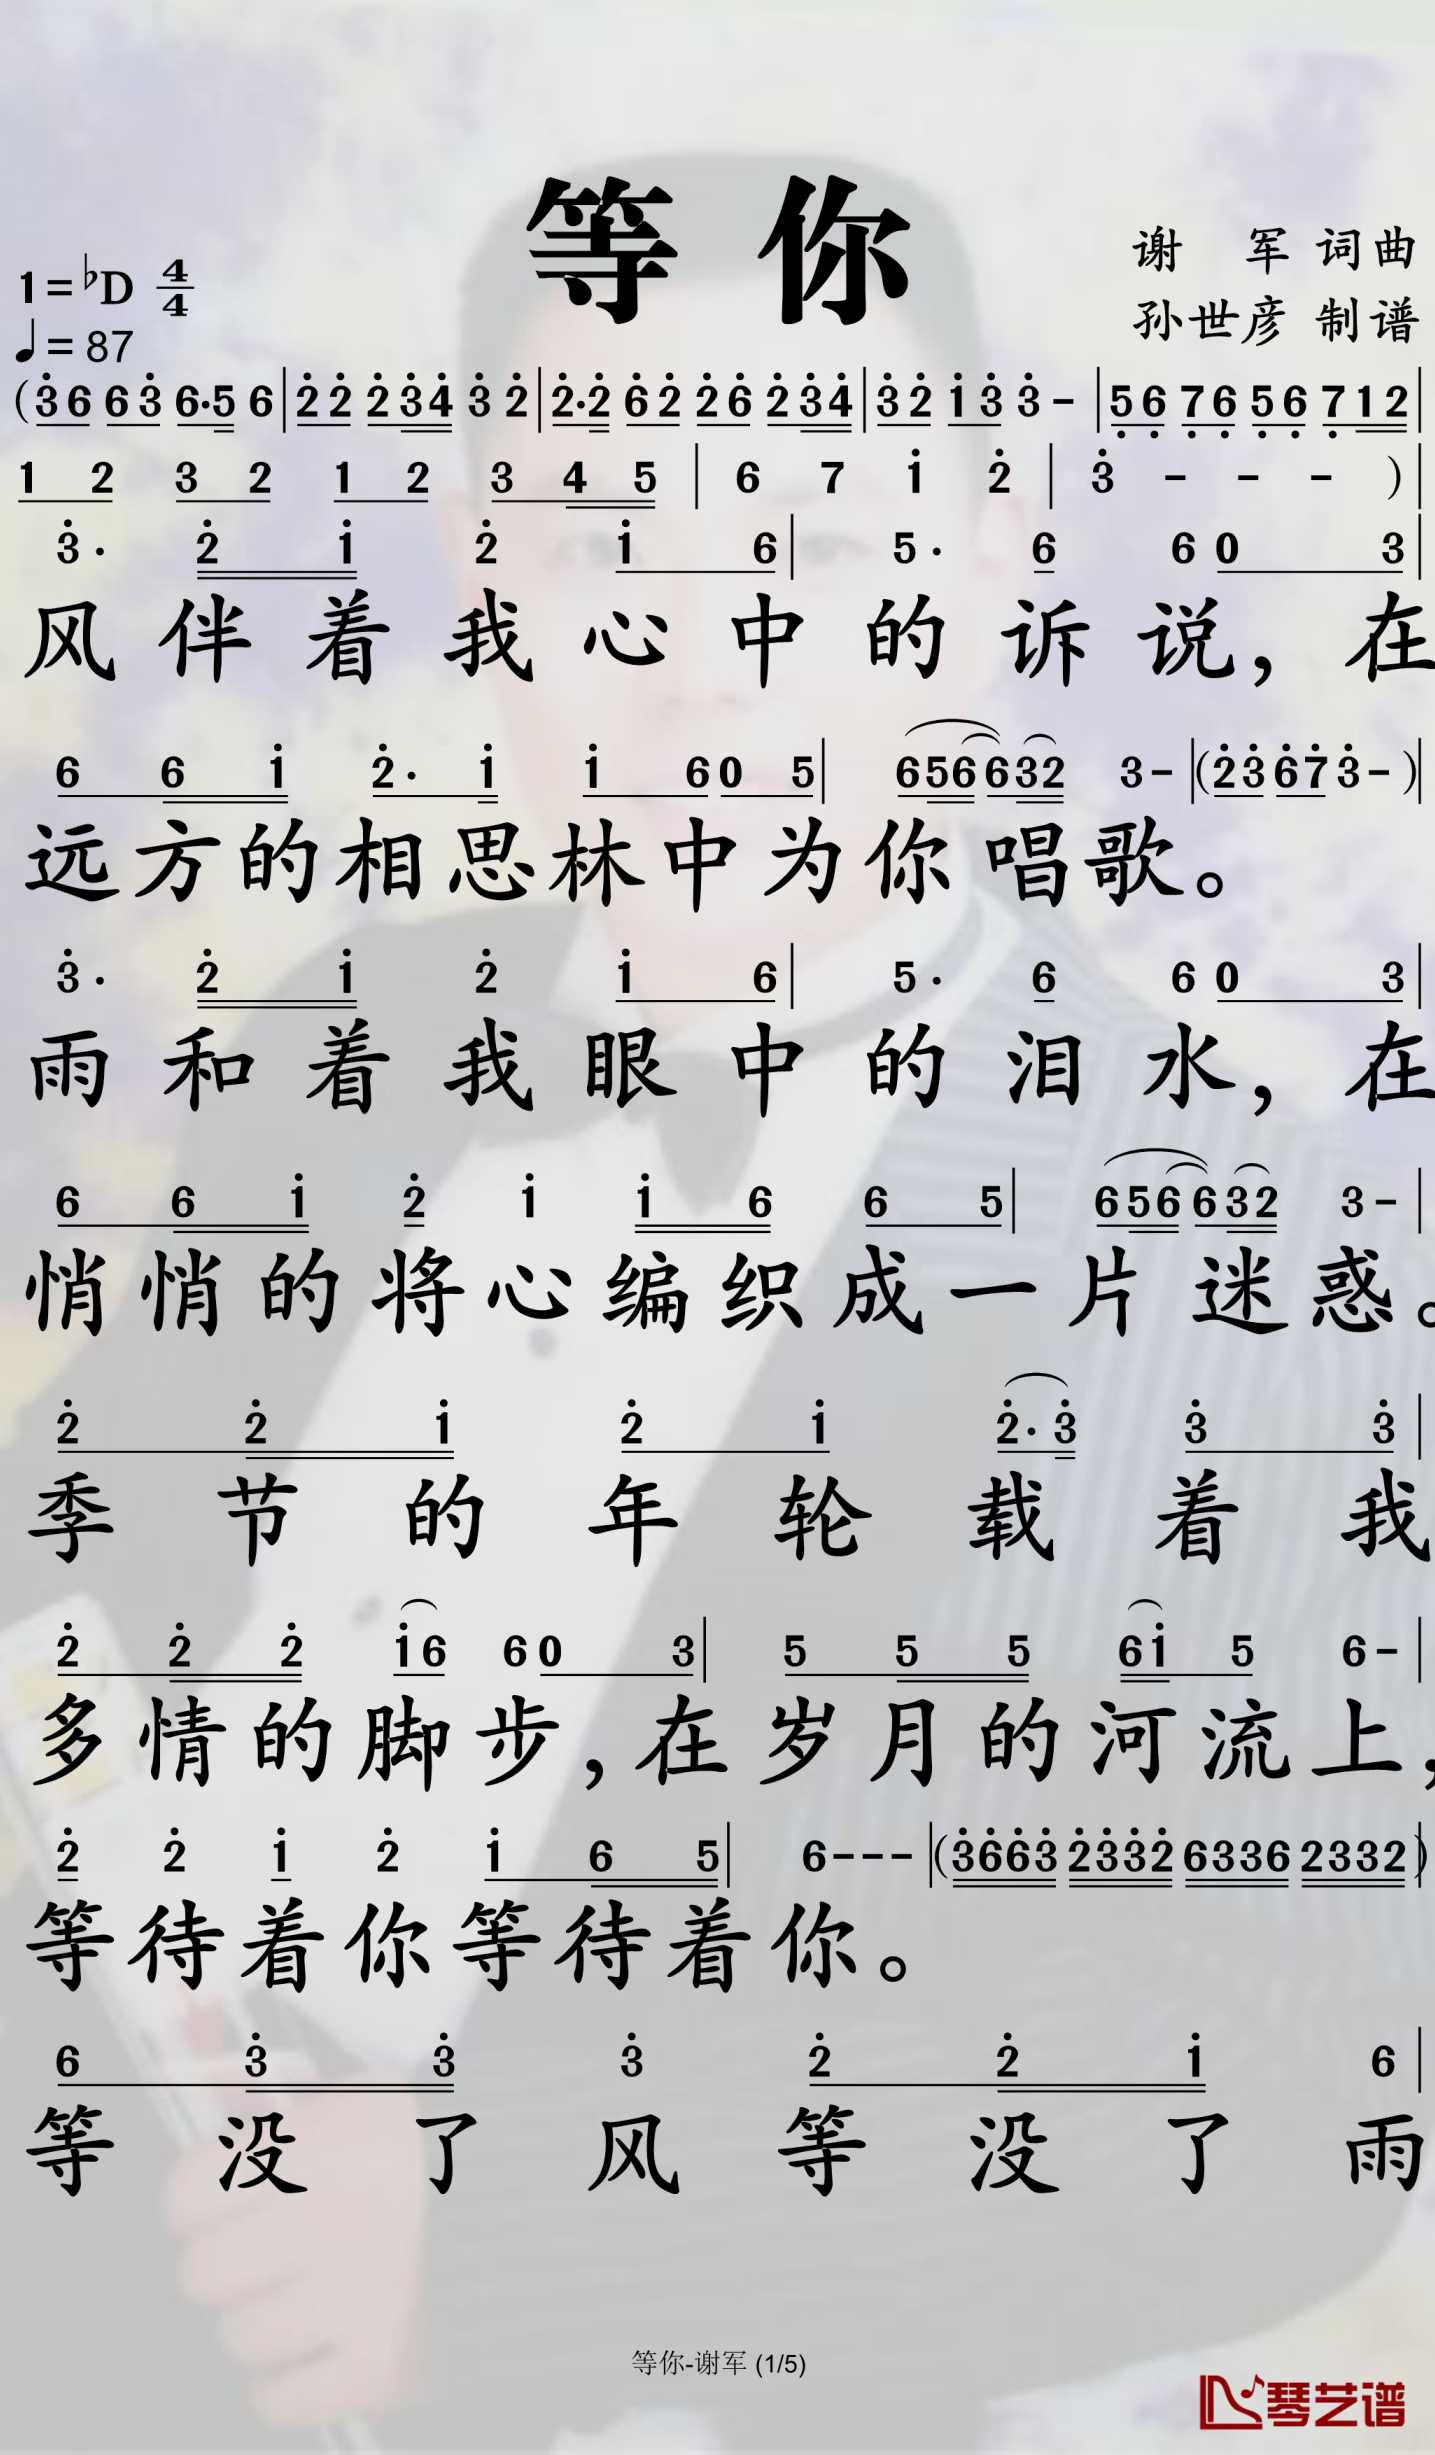 等你
谢 军 词曲
1=♭D 4/4
孙世彦 制谱
♩=87
(3̇6 63̇ 6·5 6|2̇2̇ 2̇3̇4̇ 3̇ 2̇|2̇·2̇ 6̇2̇ 2̇6̇ 2̇3̇4̇|3̇2̇ 1̇3̇ 3̇ -|5̣6̣ 7̣6̣ 5̣6̣ 7̣12|
1 2 3 2 1 2 3 4 5|6 7 1̇ 2̇|3̇ - - - )|
3̇· 2̇ 1̇ 2̇ 1̇ 6|5· 6 6 0 3|
风伴着我心中的诉说,在
6 6 1̇ 2̇· 1̇ 1̇ 6 0 5|656632 3-|(2̇3̇ 6̇7̇ 3̇-)|
远方的相思林中为你唱歌。
3̇· 2̇ 1̇ 2̇ 1̇ 6|5· 6 6 0 3|
雨和着我眼中的泪水,在
6 6 1̇ 2̇ 1̇ 1̇ 6 6 5|656632 3-|
悄悄的将心编织成一片迷惑。
2̇ 2̇ 1̇ 2̇ 1̇ 2̇·3̇ 3̇ 3̇|
季节的年轮载着我
2̇ 2̇ 2̇ 1̇6 6 0 3|5 5 5 61̇ 5 6-|
多情的脚步,在岁月的河流上,
2̇ 2̇ 1̇ 2̇ 1̇ 6 5|6---|(3̇6̇6̇3̇ 2̇3̇3̇2̇ 6336 2332)|
等待着你等待着你。
6 3̇ 3̇ 3̇ 2̇ 2̇ 1̇ 6|
等没了风等没了雨
等你-谢军 (1/5)
琴艺谱